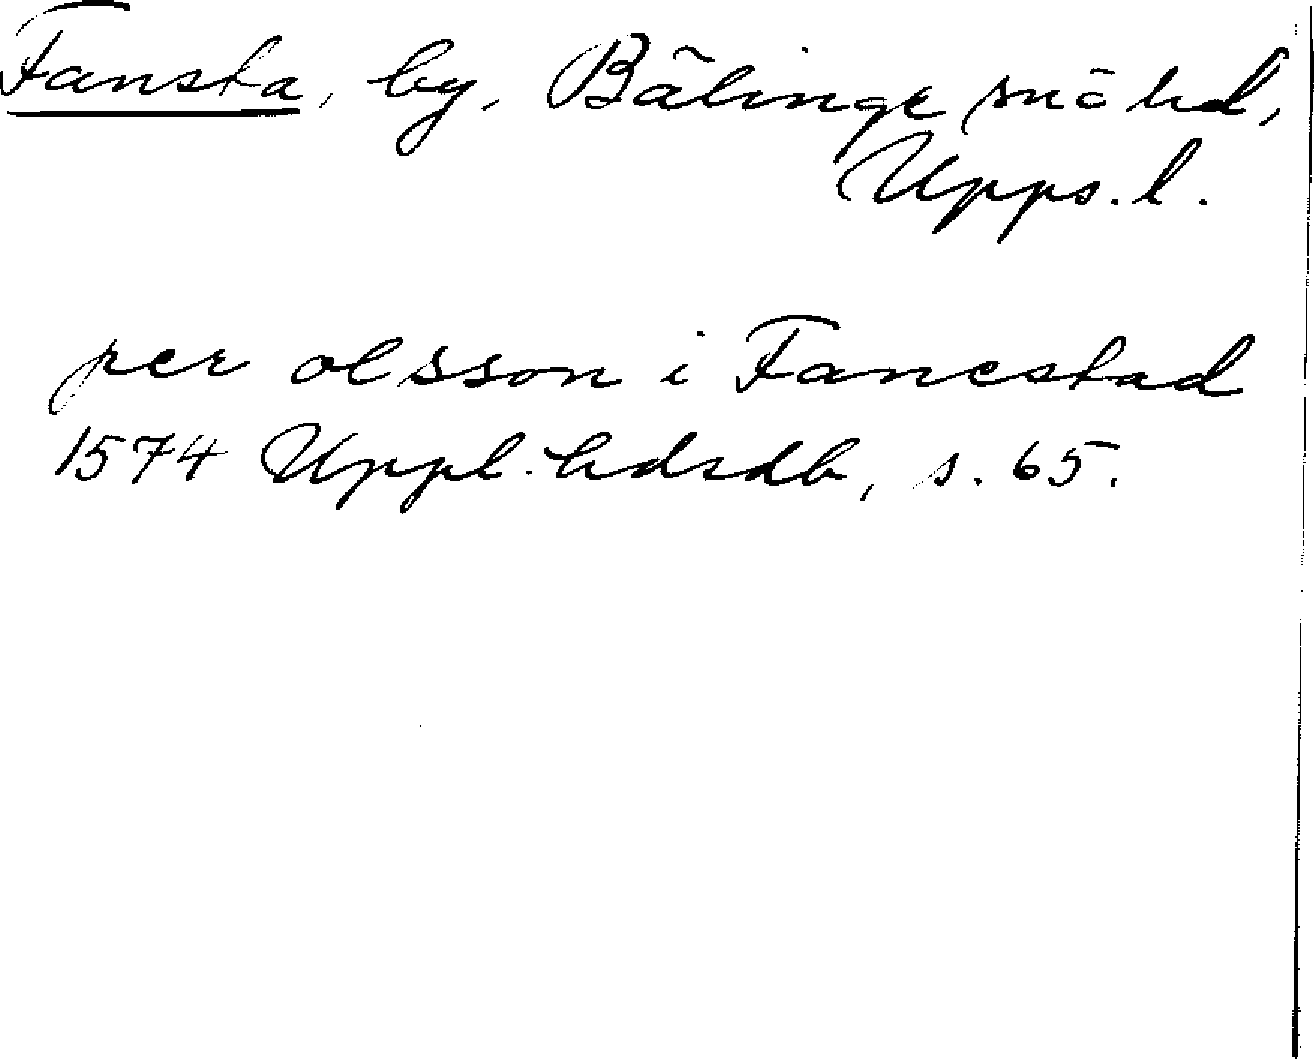 Fansta, by, Bälinge sn ö hd,
Upps. l.
per olsson i Fanestad
1574 Uppl. hdrdb, s. 65.